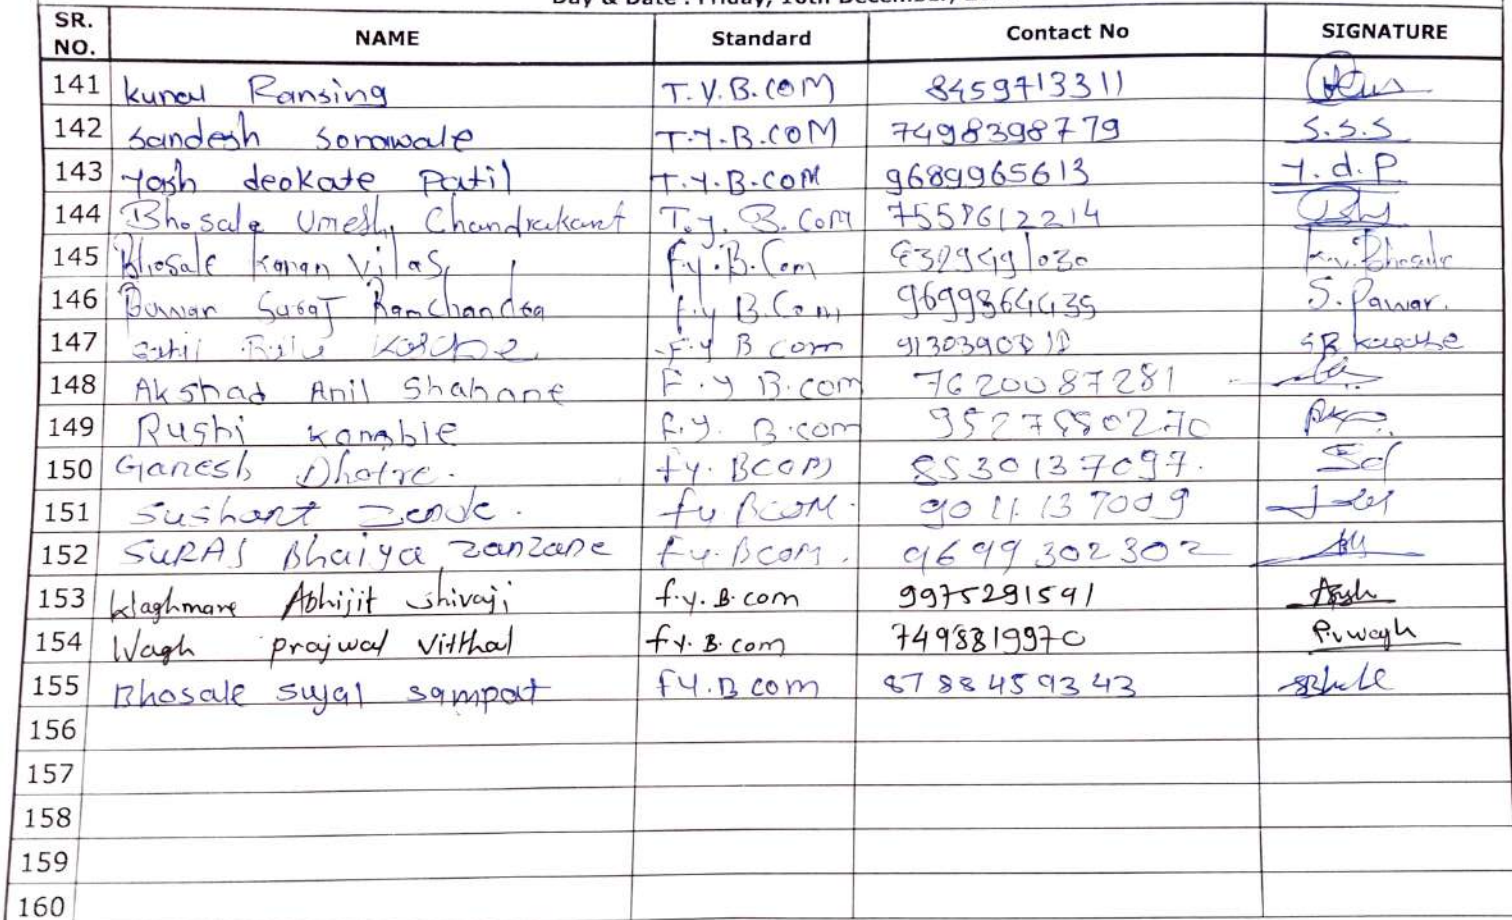 SR. NO. NAME Standard Contact No SIGNATURE
141 Kunal Ransing T.Y.B.COM 8459713311
142 Sandesh Sonawale T.Y.B.COM 7498398779 S.S.S
143 Yash deokate Patil T.Y.B.COM 9689965613 Y.d.P
144 Bhosale Umesh Chandrakant T.y. B.Com 7558612214
145 Bhosale Karan Vilas f.y.B.Com K.V.Bhosale
146 Suraj Ramchandra f.y B.Com 9699864435 S. Pawar.
147 F.y B com SB
148 Akshad Anil Shahane F.y B.com 7620087281
149 Rushi Kamble F.y. B.com
150 Ganesh Dhotre. fy. BCOM 8530137097.
151 Sushant fy BCOM. 9011137009
152 SURAJ Bhaiya zanzane fy.BCOM. 9699302302
153 Waghmare Abhijit Shivaji f.y.B.com 9975291591
154 Wagh prajwal Vitthal f.y.B.com 7498819970 P.v wagh
155 Bhosale sujal sampat FY.B com 8788459343
156
157
158
159
160